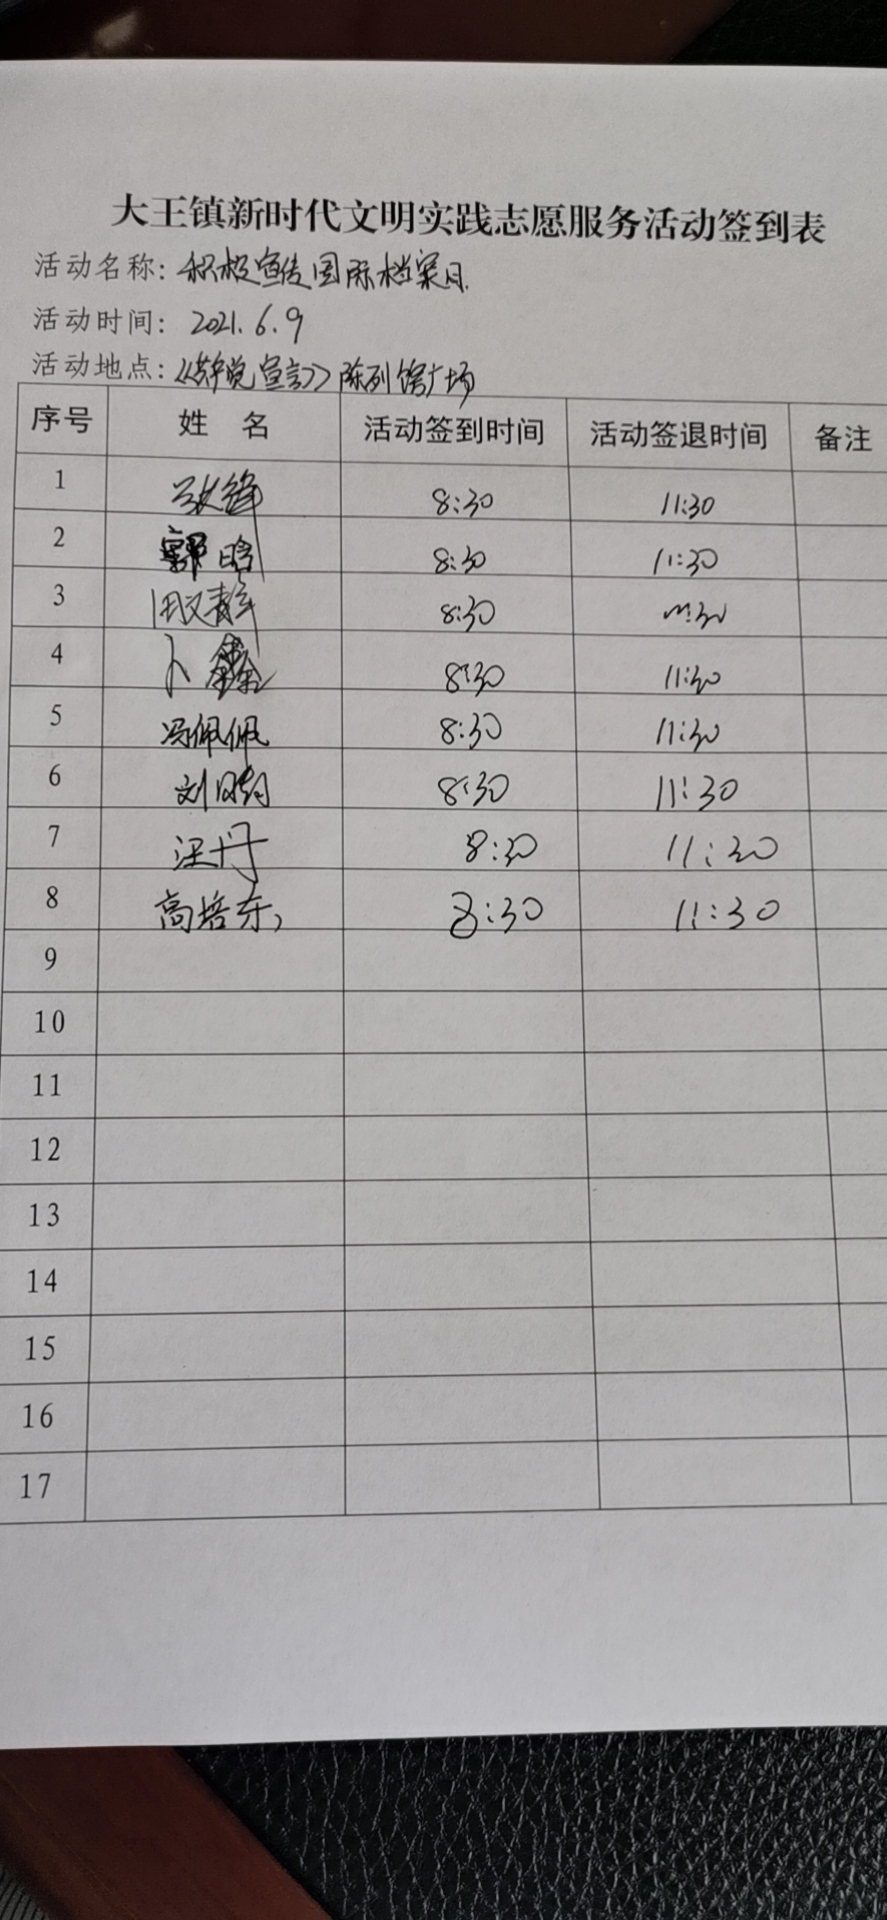 大王镇新时代文明实践志愿服务活动签到表
活动名称: 积极宣传国际档案日.
活动时间: 2021.6.9
活动地点: 《共产党宣言》陈列馆广场
序号 姓 名 活动签到时间 活动签退时间 备注
1 8:30 11:30
2 郭晗 8:30 11:30
3 8:30 11:30
4 卜鑫 8:30 11:30
5 冯佩佩 8:30 11:30
6 刘 8:30 11:30
7 汪丹 8:30 11:30
8 高培东 8:30 11:30
9
10
11
12
13
14
15
16
17